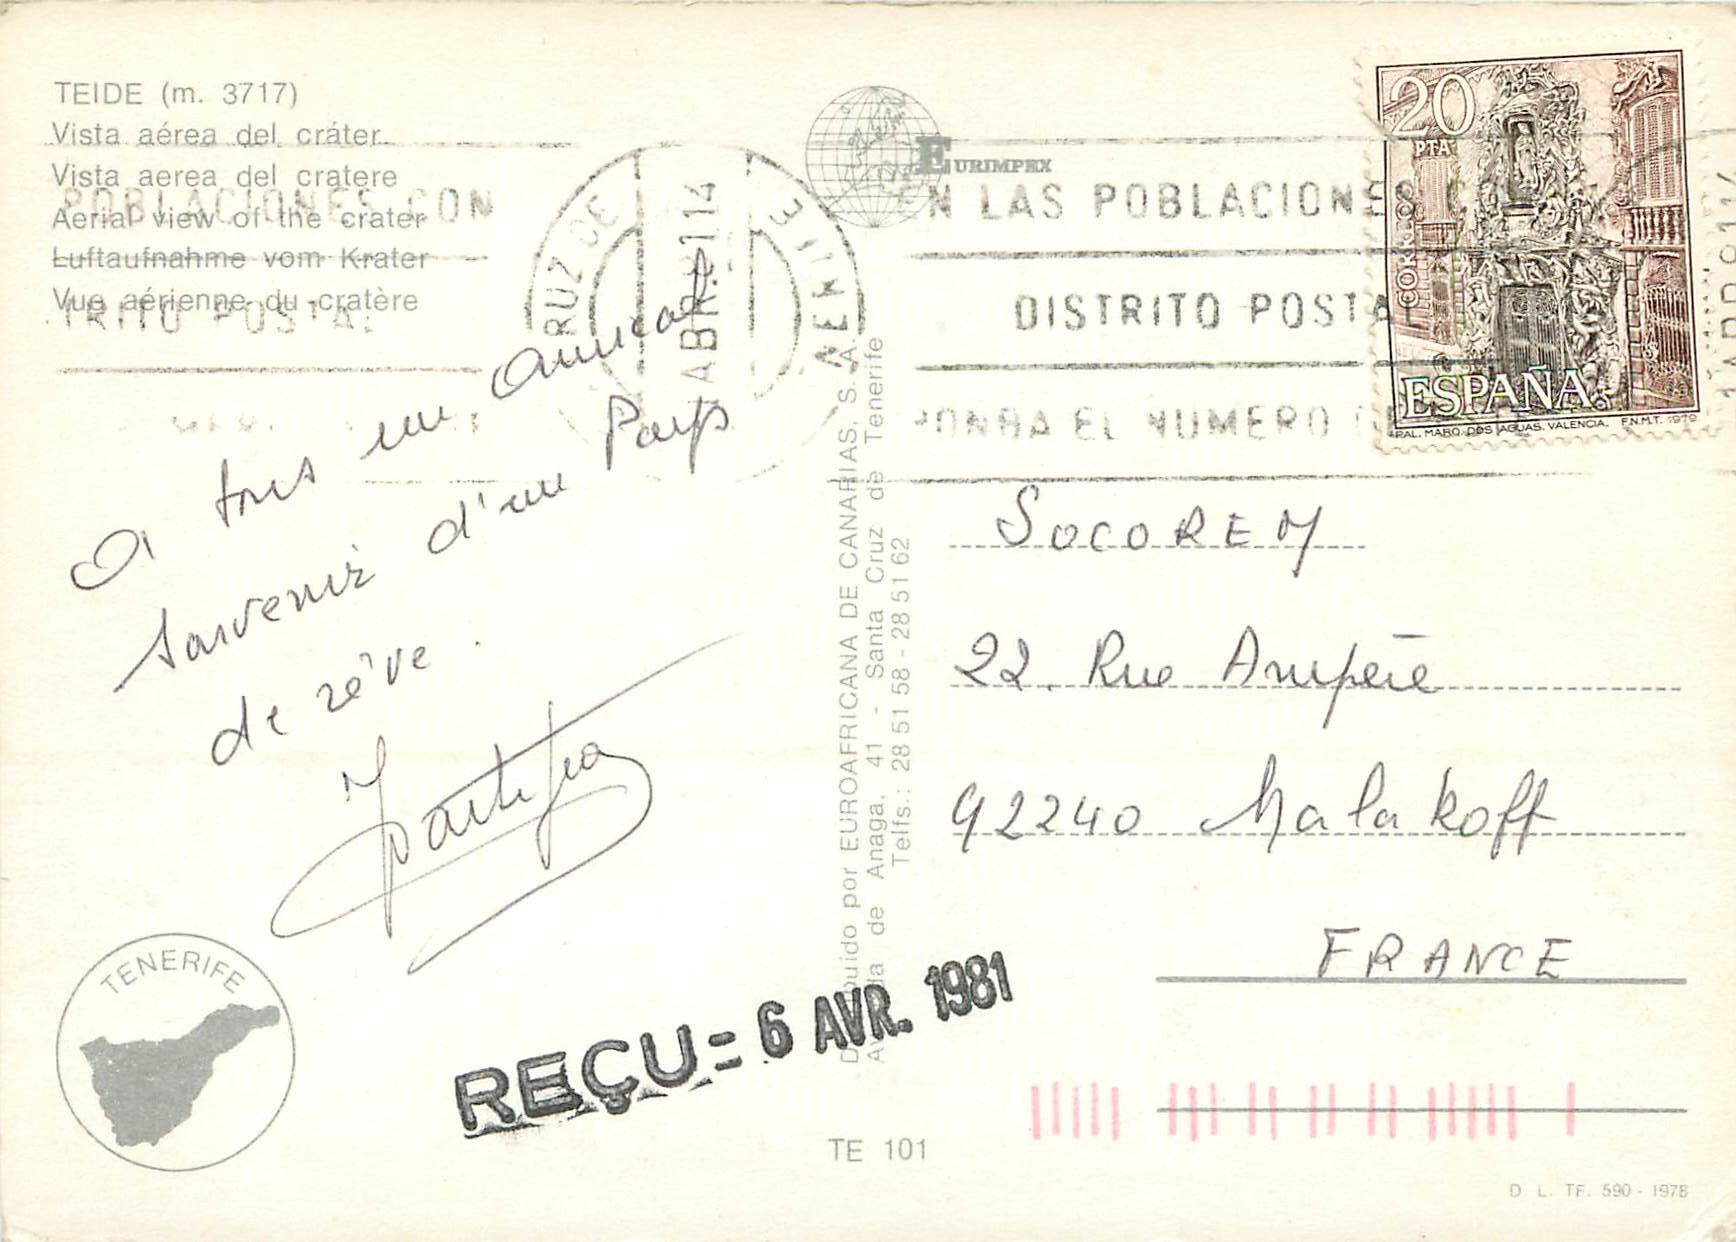 TEIDE (m. 3717)
Vista aérea del cráter
Vista aerea del cratere
Aerial view of the crater
Luftaufnahme vom Krater
Vue aérienne du cratère
POBLACIONES CON
TRITO POSTAL
CRUZ DE
TENERIFE
ABR. 114
EURIMPEX
EN LAS POBLACIONES
DISTRITO POSTAL
PONGA EL NUMERO
20
PTA
CORREOS
ESPAÑA
PAL. MARQ. DOS AGUAS. VALENCIA. F.N.M.T. 1979
A tous un amical
souvenir d'un Pays
de rêve.
Distribuido por EUROAFRICANA DE CANARIAS, S. A.
Avda de Anaga, 41 - Santa Cruz de Tenerife
Telfs.: 28 51 58 - 28 51 62
SOCOREM
22. Rue Ampère
92240 Malakoff
FRANCE
TENERIFE
REÇU = 6 AVR. 1981
TE 101
D. L. TF. 590 - 1978